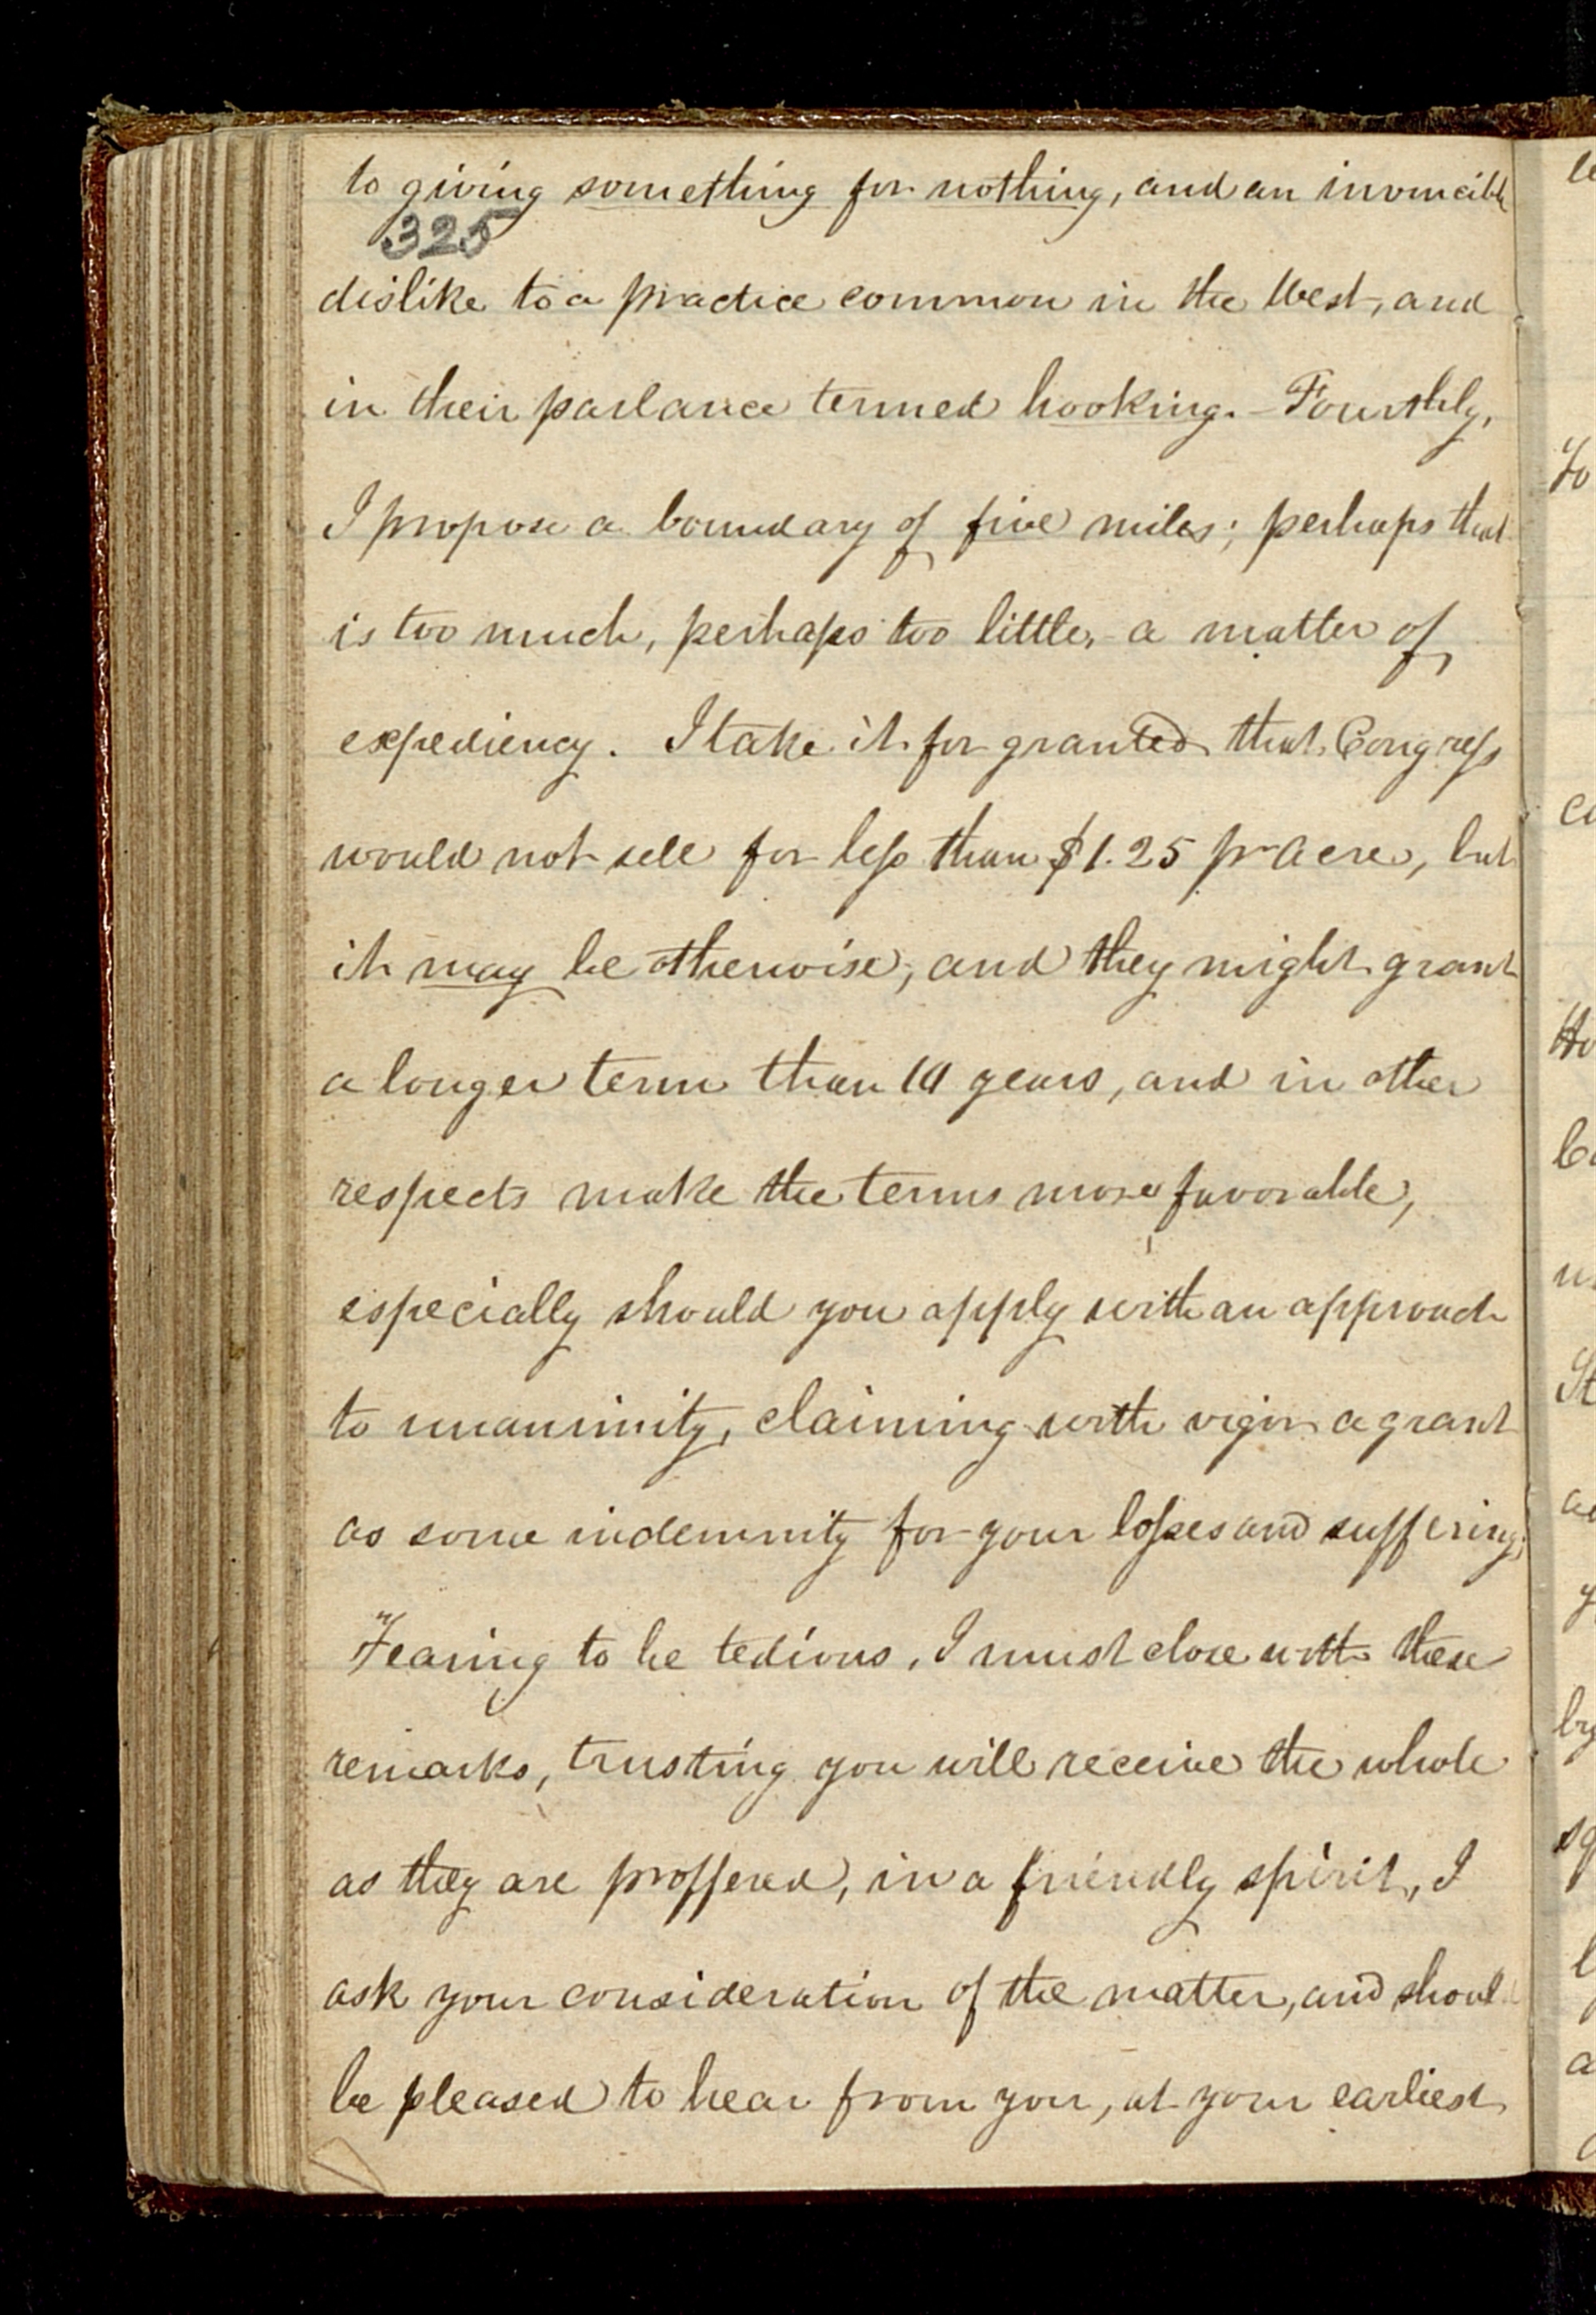 to giving something for nothing, and an invincible
325
dislike to a practice common in the West, and
in their parlance termed hooking. - Fourthly,
I propose a boundary of five miles; perhaps that
is too much, perhaps too little, a matter of
expediency. I take it for granted that Congress
would not sell for less than $1.25 pr acre, but
it may be otherwise, and they might grant
a longer term than 10 years, and in other
respects make the terms more favorable,
especially should you apply with an approach
to unanimity, claiming with vigor a grant
as some indemnity for your losses and suffering;
Fearing to be tedious, I must close with these
remarks, trusting you will receive the whole
as they are proffered, in a friendly spirit, I
ask your consideration of the matter, and should
be pleased to hear from you, at your earliest